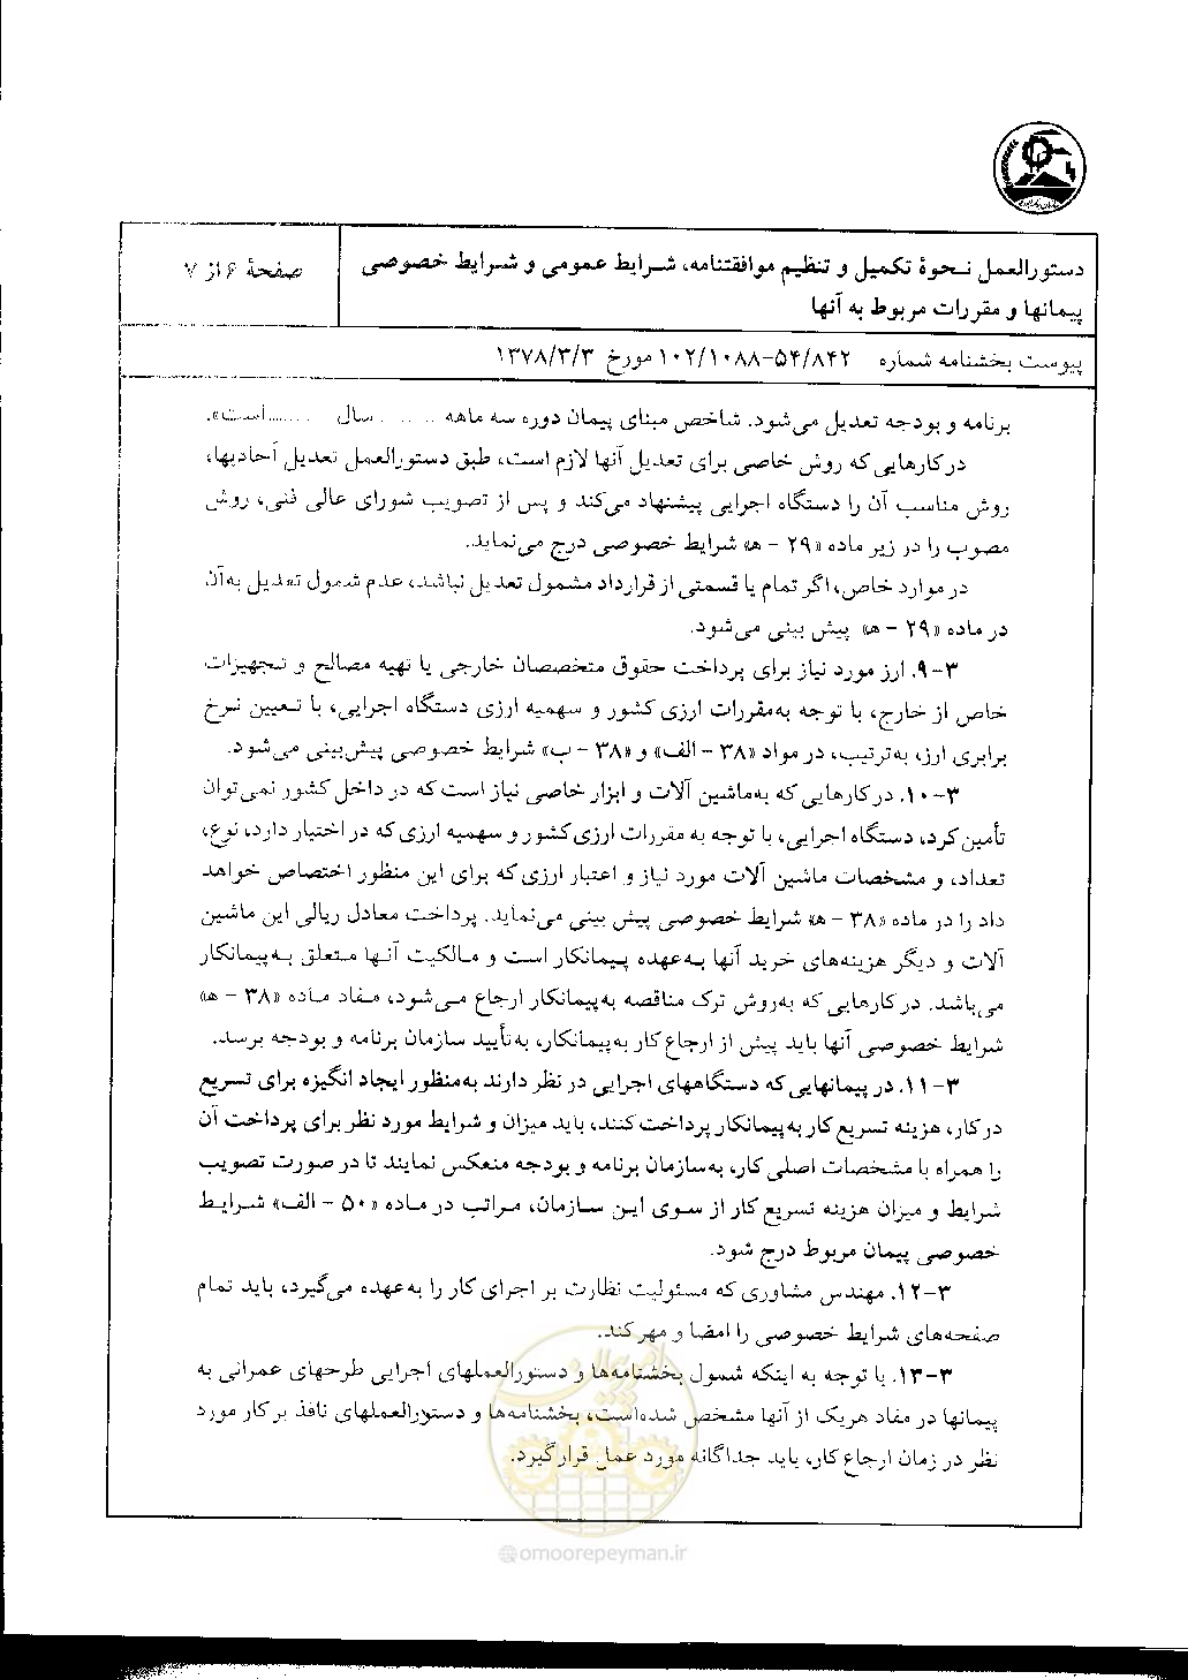 دستورالعمل نحوهٔ تکمیل و تنظیم موافقتنامه، شرایط عمومی و شرایط خصوصی
پیمانها و مقررات مربوط به آنها
صفحهٔ ۶ از ۷
پیوست بخشنامه شماره ۱۰۲/۱۰۸۸-۵۴/۸۴۲ مورخ ۱۳۷۸/۳/۳
برنامه و بودجه تعدیل می‌شود. شاخص مبنای پیمان دوره سه ماهه ........ سال ........ است».
در کارهایی که روش خاصی برای تعدیل آنها لازم است، طبق دستورالعمل تعدیل آحادبها،
روش مناسب آن را دستگاه اجرایی پیشنهاد می‌کند و پس از تصویب شورای عالی فنی، روش
مصوب را در زیر ماده «۲۹ - ه» شرایط خصوصی درج می‌نماید.
در موارد خاص، اگر تمام یا قسمتی از قرارداد مشمول تعدیل نباشد، عدم شمول تعدیل به‌آن
در ماده «۲۹ - ه» پیش بینی می‌شود.
۳-۹. ارز مورد نیاز برای پرداخت حقوق متخصصان خارجی یا تهیه مصالح و تجهیزات
خاص از خارج، با توجه به‌مقررات ارزی کشور و سهمیه ارزی دستگاه اجرایی، با تعیین نرخ
برابری ارز، به‌ترتیب، در مواد «۳۸ - الف» و «۳۸ - ب» شرایط خصوصی پیش‌بینی می‌شود.
۳-۱۰. در کارهایی که به‌ماشین آلات و ابزار خاصی نیاز است که در داخل کشور نمی‌توان
تأمین کرد، دستگاه اجرایی، با توجه به مقررات ارزی کشور و سهمیه ارزی که در اختیار دارد، نوع،
تعداد، و مشخصات ماشین آلات مورد نیاز و اعتبار ارزی که برای این منظور اختصاص خواهد
داد را در ماده «۳۸ - ه» شرایط خصوصی پیش بینی می‌نماید. پرداخت معادل ریالی این ماشین
آلات و دیگر هزینه‌های خرید آنها به‌عهده پیمانکار است و مالکیت آنها متعلق به‌پیمانکار
می‌باشد. در کارهایی که به‌روش ترک مناقصه به‌پیمانکار ارجاع می‌شود، مفاد ماده «۳۸ - ه»
شرایط خصوصی آنها باید پیش از ارجاع کار به‌پیمانکار، به‌تأیید سازمان برنامه و بودجه برسد.
۳-۱۱. در پیمانهایی که دستگاههای اجرایی در نظر دارند به‌منظور ایجاد انگیزه برای تسریع
در کار، هزینه تسریع کار به‌پیمانکار پرداخت کنند، باید میزان و شرایط مورد نظر برای پرداخت آن
را همراه با مشخصات اصلی کار، به‌سازمان برنامه و بودجه منعکس نمایند تا در صورت تصویب
شرایط و میزان هزینه تسریع کار از سوی این سازمان، مراتب در ماده «۵۰ - الف» شرایط
خصوصی پیمان مربوط درج شود.
۳-۱۲. مهندس مشاوری که مسئولیت نظارت بر اجرای کار را به‌عهده می‌گیرد، باید تمام
صفحه‌های شرایط خصوصی را امضا و مهر کند.
۳-۱۳. با توجه به اینکه شمول بخشنامه‌ها و دستورالعملهای اجرایی طرحهای عمرانی به
پیمانها در مفاد هریک از آنها مشخص شده‌است، بخشنامه‌ها و دستورالعملهای نافذ بر کار مورد
نظر در زمان ارجاع کار، باید جداگانه مورد عمل قرار گیرد.
@omoorepeyman.ir